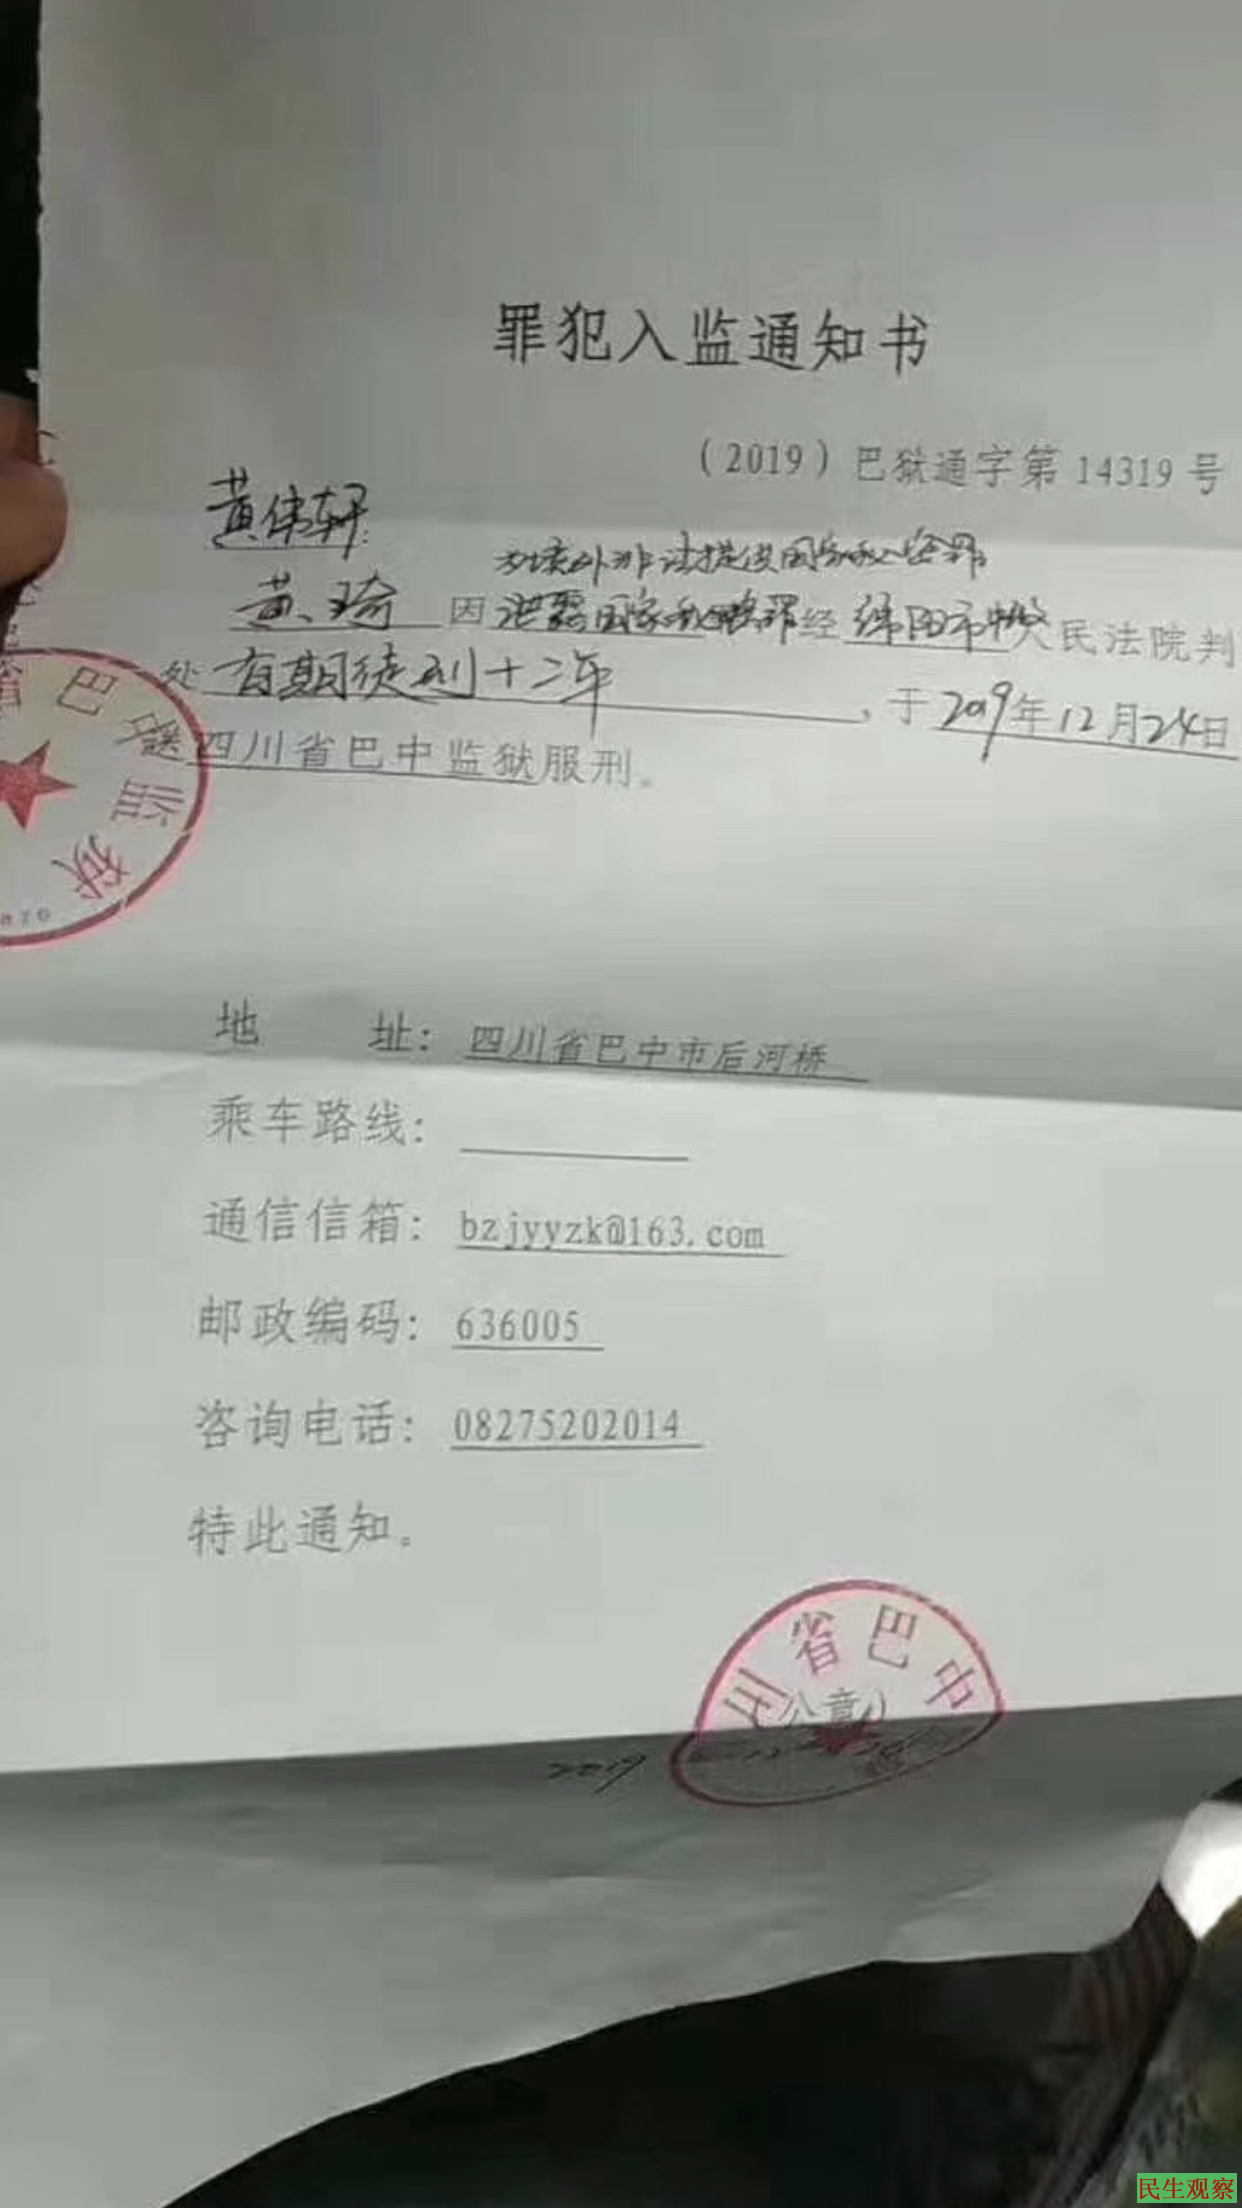 罪犯入监通知书
（2019）巴狱通字第 14319 号
黄伟轩:
为境外非法提供国家秘密罪
黄琦 因 泄露国家秘密罪 经 绵阳市中级人民法院判
处 有期徒刑十二年，于 2019年12月24日
送 四川省巴中监狱服刑。
省巴中监狱
地 址： 四川省巴中市后河桥
乘车路线：
通信信箱： bzjyyzk@163.com
邮政编码： 636005
咨询电话： 08275202014
特此通知。
川省巴中
（公章）
2019
民生观察